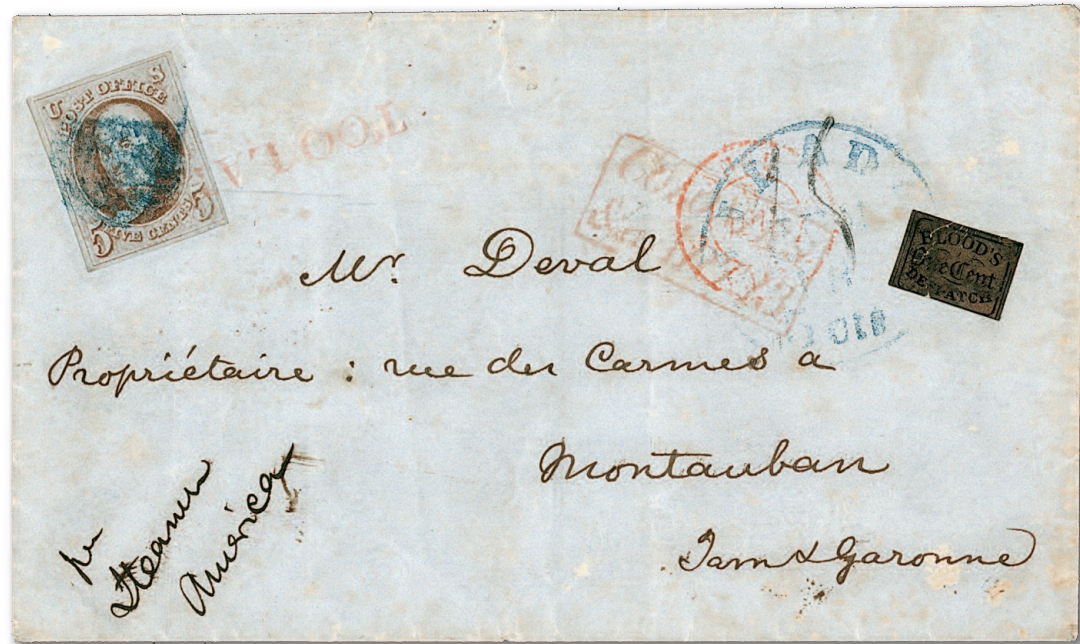 U S
POST OFFICE
5 FIVE CENTS 5
FLOOD'S
One Cent
DESPATCH
Mr. Deval
Propriétaire : rue des Carmes a
Montauban
Tarn & Garonne
per
Steamer
America